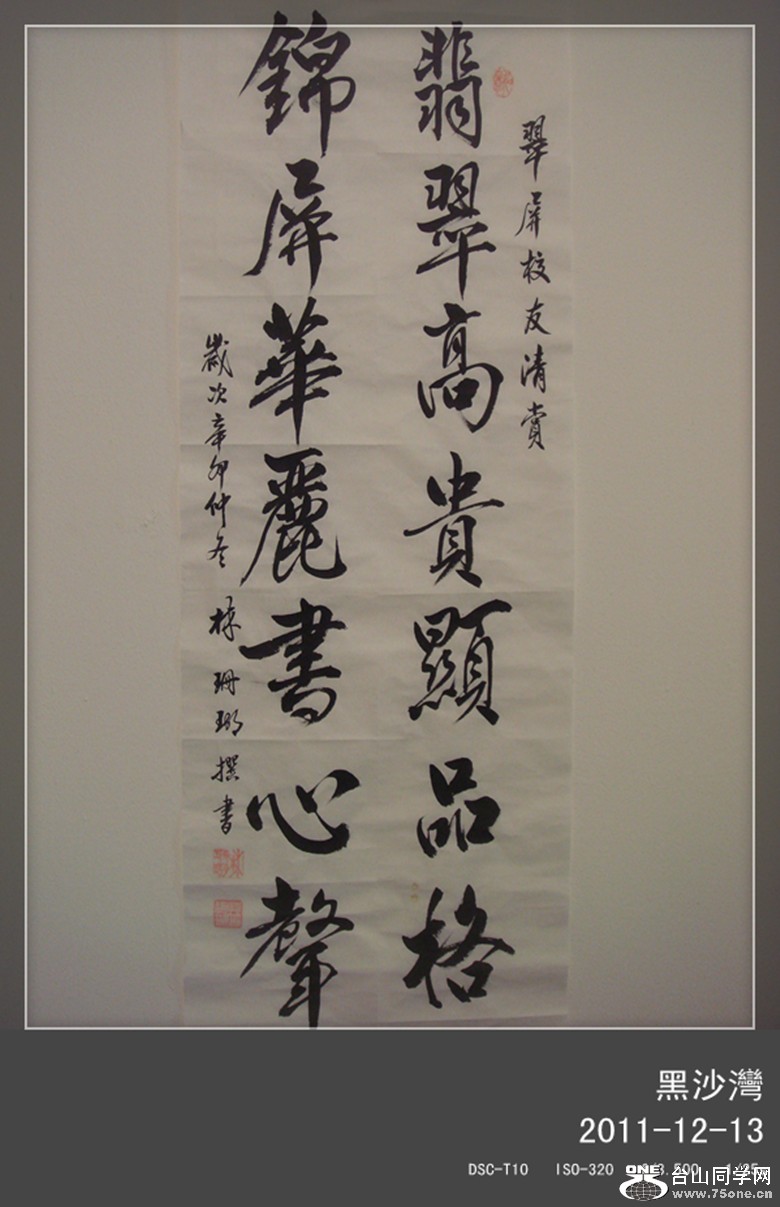 翠屏校友清賞
翡翠高貴顯品格
錦屏華麗書心聲
歲次辛卯仲冬 林珊瑚撰書
黑沙灣
2011-12-13
DSC-T10 ISO-320
ONE 台山同学网
www.75one.cn